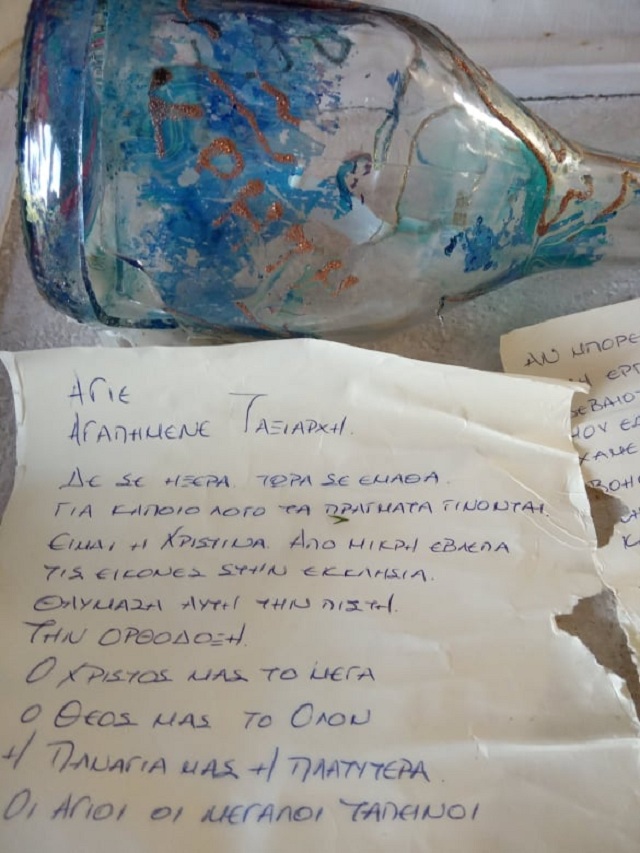 ΑΓΙΕ
ΑΓΑΠΗΜΕΝΕ ΤΑΞΙΑΡΧΗ.
ΔΕ ΣΕ ΗΞΕΡΑ. ΤΩΡΑ ΣΕ ΕΜΑΘΑ.
ΓΙΑ ΚΑΠΟΙΟ ΛΟΓΟ ΤΑ ΠΡΑΓΜΑΤΑ ΓΙΝΟΝΤΑΙ.
ΕΙΜΑΙ Η ΧΡΙΣΤΙΝΑ. ΑΠΟ ΜΙΚΡΗ ΕΒΛΕΠΑ
ΤΙΣ ΕΙΚΟΝΕΣ ΣΤΗΝ ΕΚΚΛΗΣΙΑ.
ΘΑΥΜΑΣΑ ΑΥΤΗ ΤΗΝ ΠΙΣΤΗ.
ΤΗΝ ΟΡΘΟΔΟΞΗ.
Ο ΧΡΙΣΤΟΣ ΜΑΣ ΤΟ ΜΕΓΑ
Ο ΘΕΟΣ ΜΑΣ ΤΟ ΟΛΟΝ
Η ΠΑΝΑΓΙΑ ΜΑΣ Η ΠΛΑΤΥΤΕΡΑ.
ΟΙ ΑΓΙΟΙ ΟΙ ΜΕΓΑΛΟΙ ΤΑΠΕΙΝΟΙ
ΑΝ ΜΠΟΡΕ